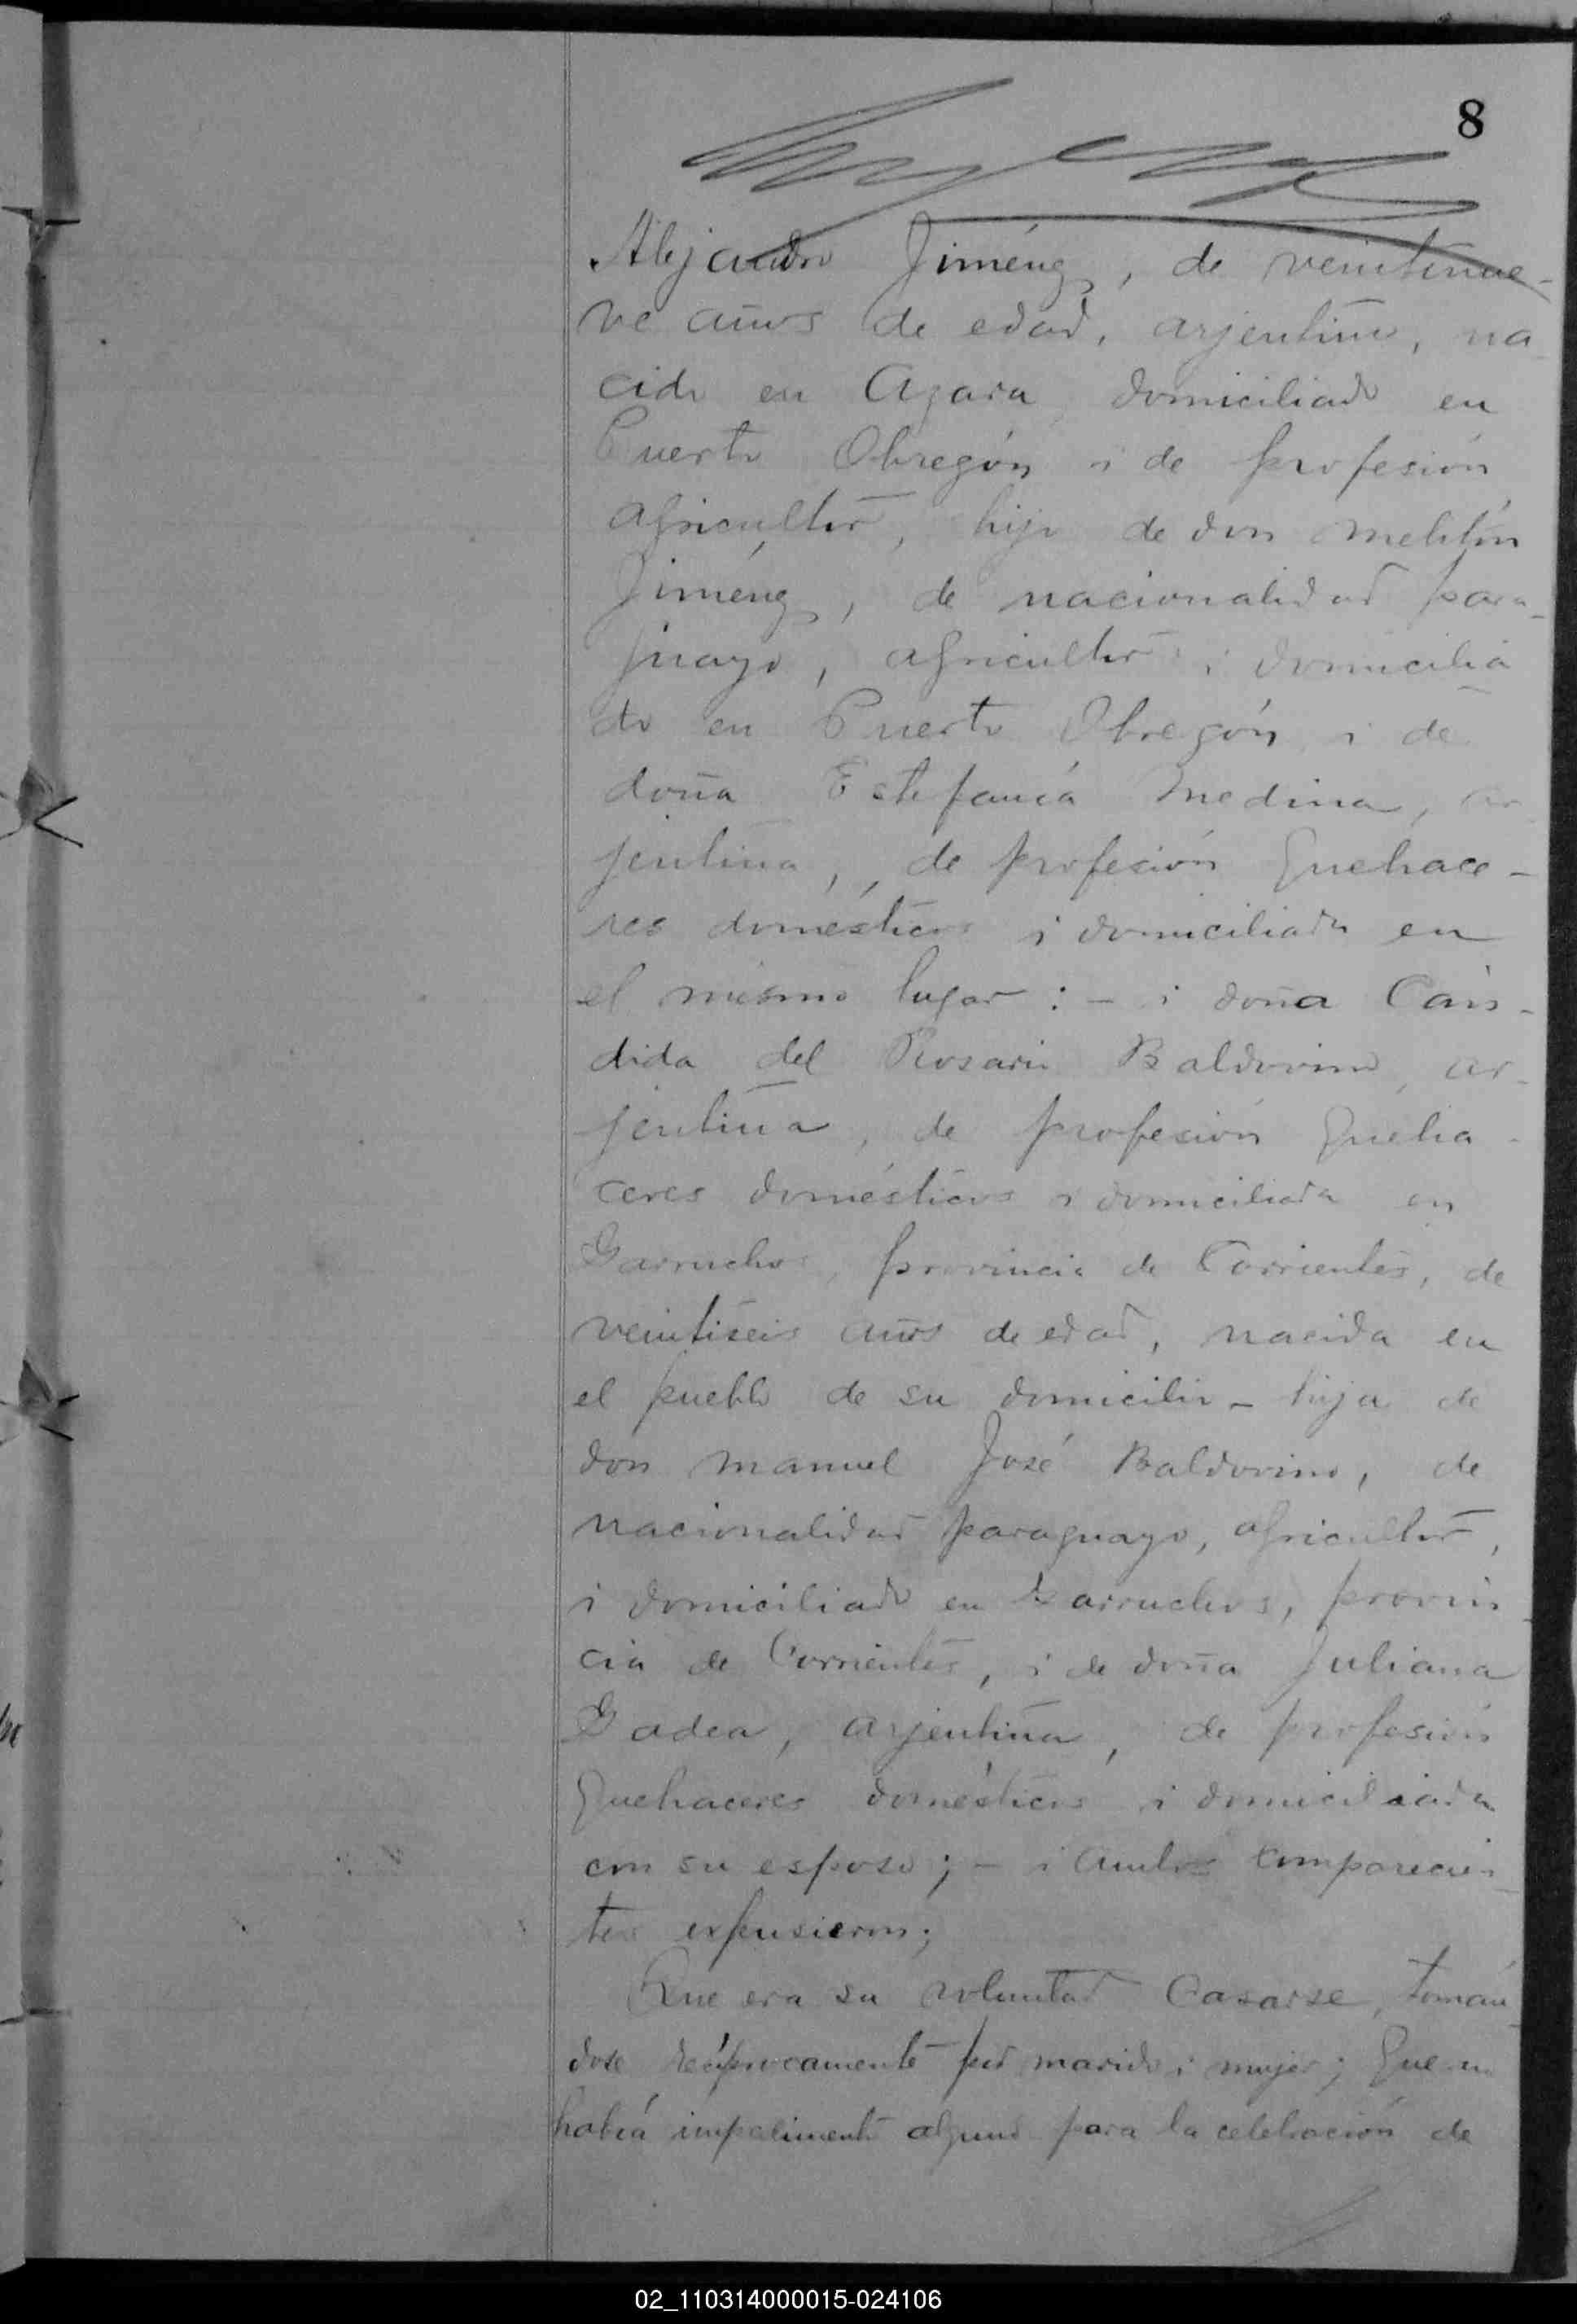 8
Alejandro Jiménez, de veintinue-
ve años de edad, arjentino, na
cido en Azara, domiciliado en
Puerto Obregón i de profesión
agricultor, hijo de don Melitón
Jiménez, de nacionalidad para-
guayo, agricultor i domicilia
do en Puerto Obregón, i de
doña Estefanía Medina, ar
jentina, de profesión quehace-
res domésticos i domiciliada en
el mismo lugar: - i doña Cán-
dida del Rosario Baldovino, ar-
jentina, de profesión queha-
ceres domésticos i domiciliada en
Garruchos, provincia de Corrientes, de
veintiseis años de edad, nacida en
el pueblo de su domicilio - hija de
don Manuel José Baldovino, de
nacionalidad paraguayo, agricultor,
i domiciliado en Garruchos, provin-
cia de Corrientes, i de doña Juliana
Gadea, arjentina, de profesión
quehaceres domésticos i domiciliada
con su esposo; - i ambos comparecien-
tes expusieron;
Que era su voluntad casarse, tomán-
dose recíprocamente por marido i mujer; que no
había impedimento alguno para la celebración de
02_110314000015-024106